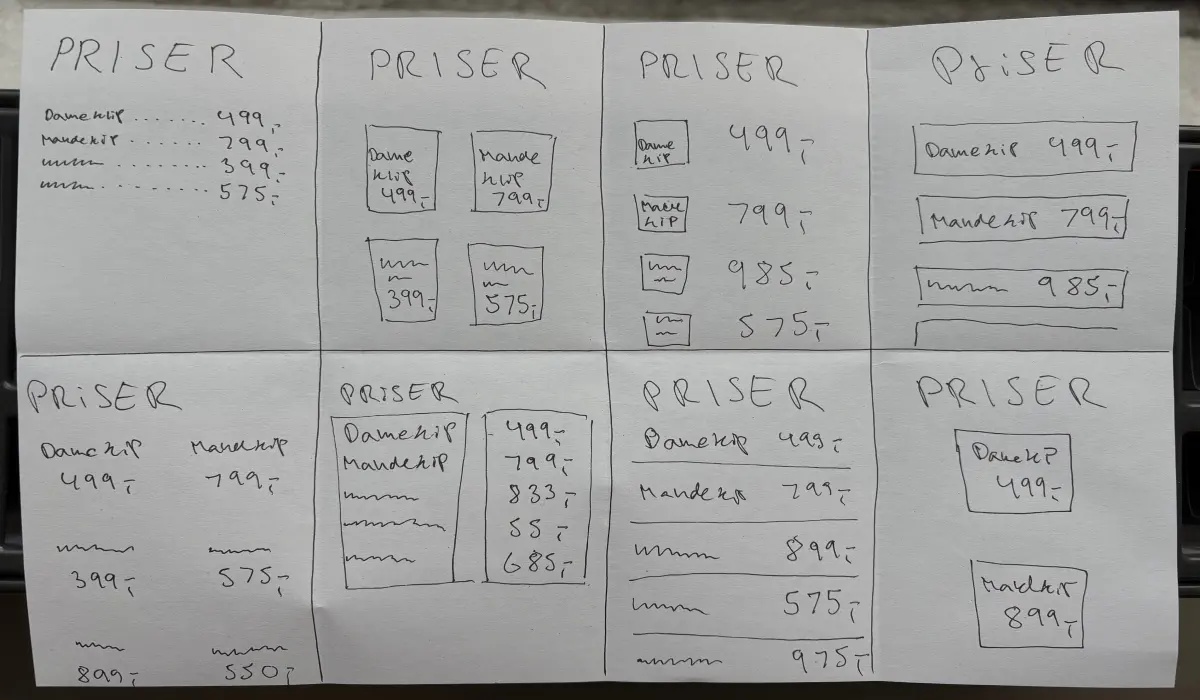 PRISER
Dameklip ....... 499,-
Mandeklip ...... 799,-
........ 399,-
........ 575,-
PRISER
Dame
klip
499,-
Mande
klip
799,-
399,-
575,-
PRISER
Dame
klip
499,-
Mande
klip
799,-
985,-
575,-
PRiSER
Dameklip 499,-
Mandeklip 799,-
985,-
PRiSER
Dameklip Mandeklip
499,- 799,-
399,- 575,-
899,- 550,-
PRiSER
Dameklip 499,-
Mandeklip 799,-
833,-
55,-
685,-
PRISER
Dameklip 499,-
Mandeklip 799,-
899,-
575,-
975,-
PRISER
499,-
899,-